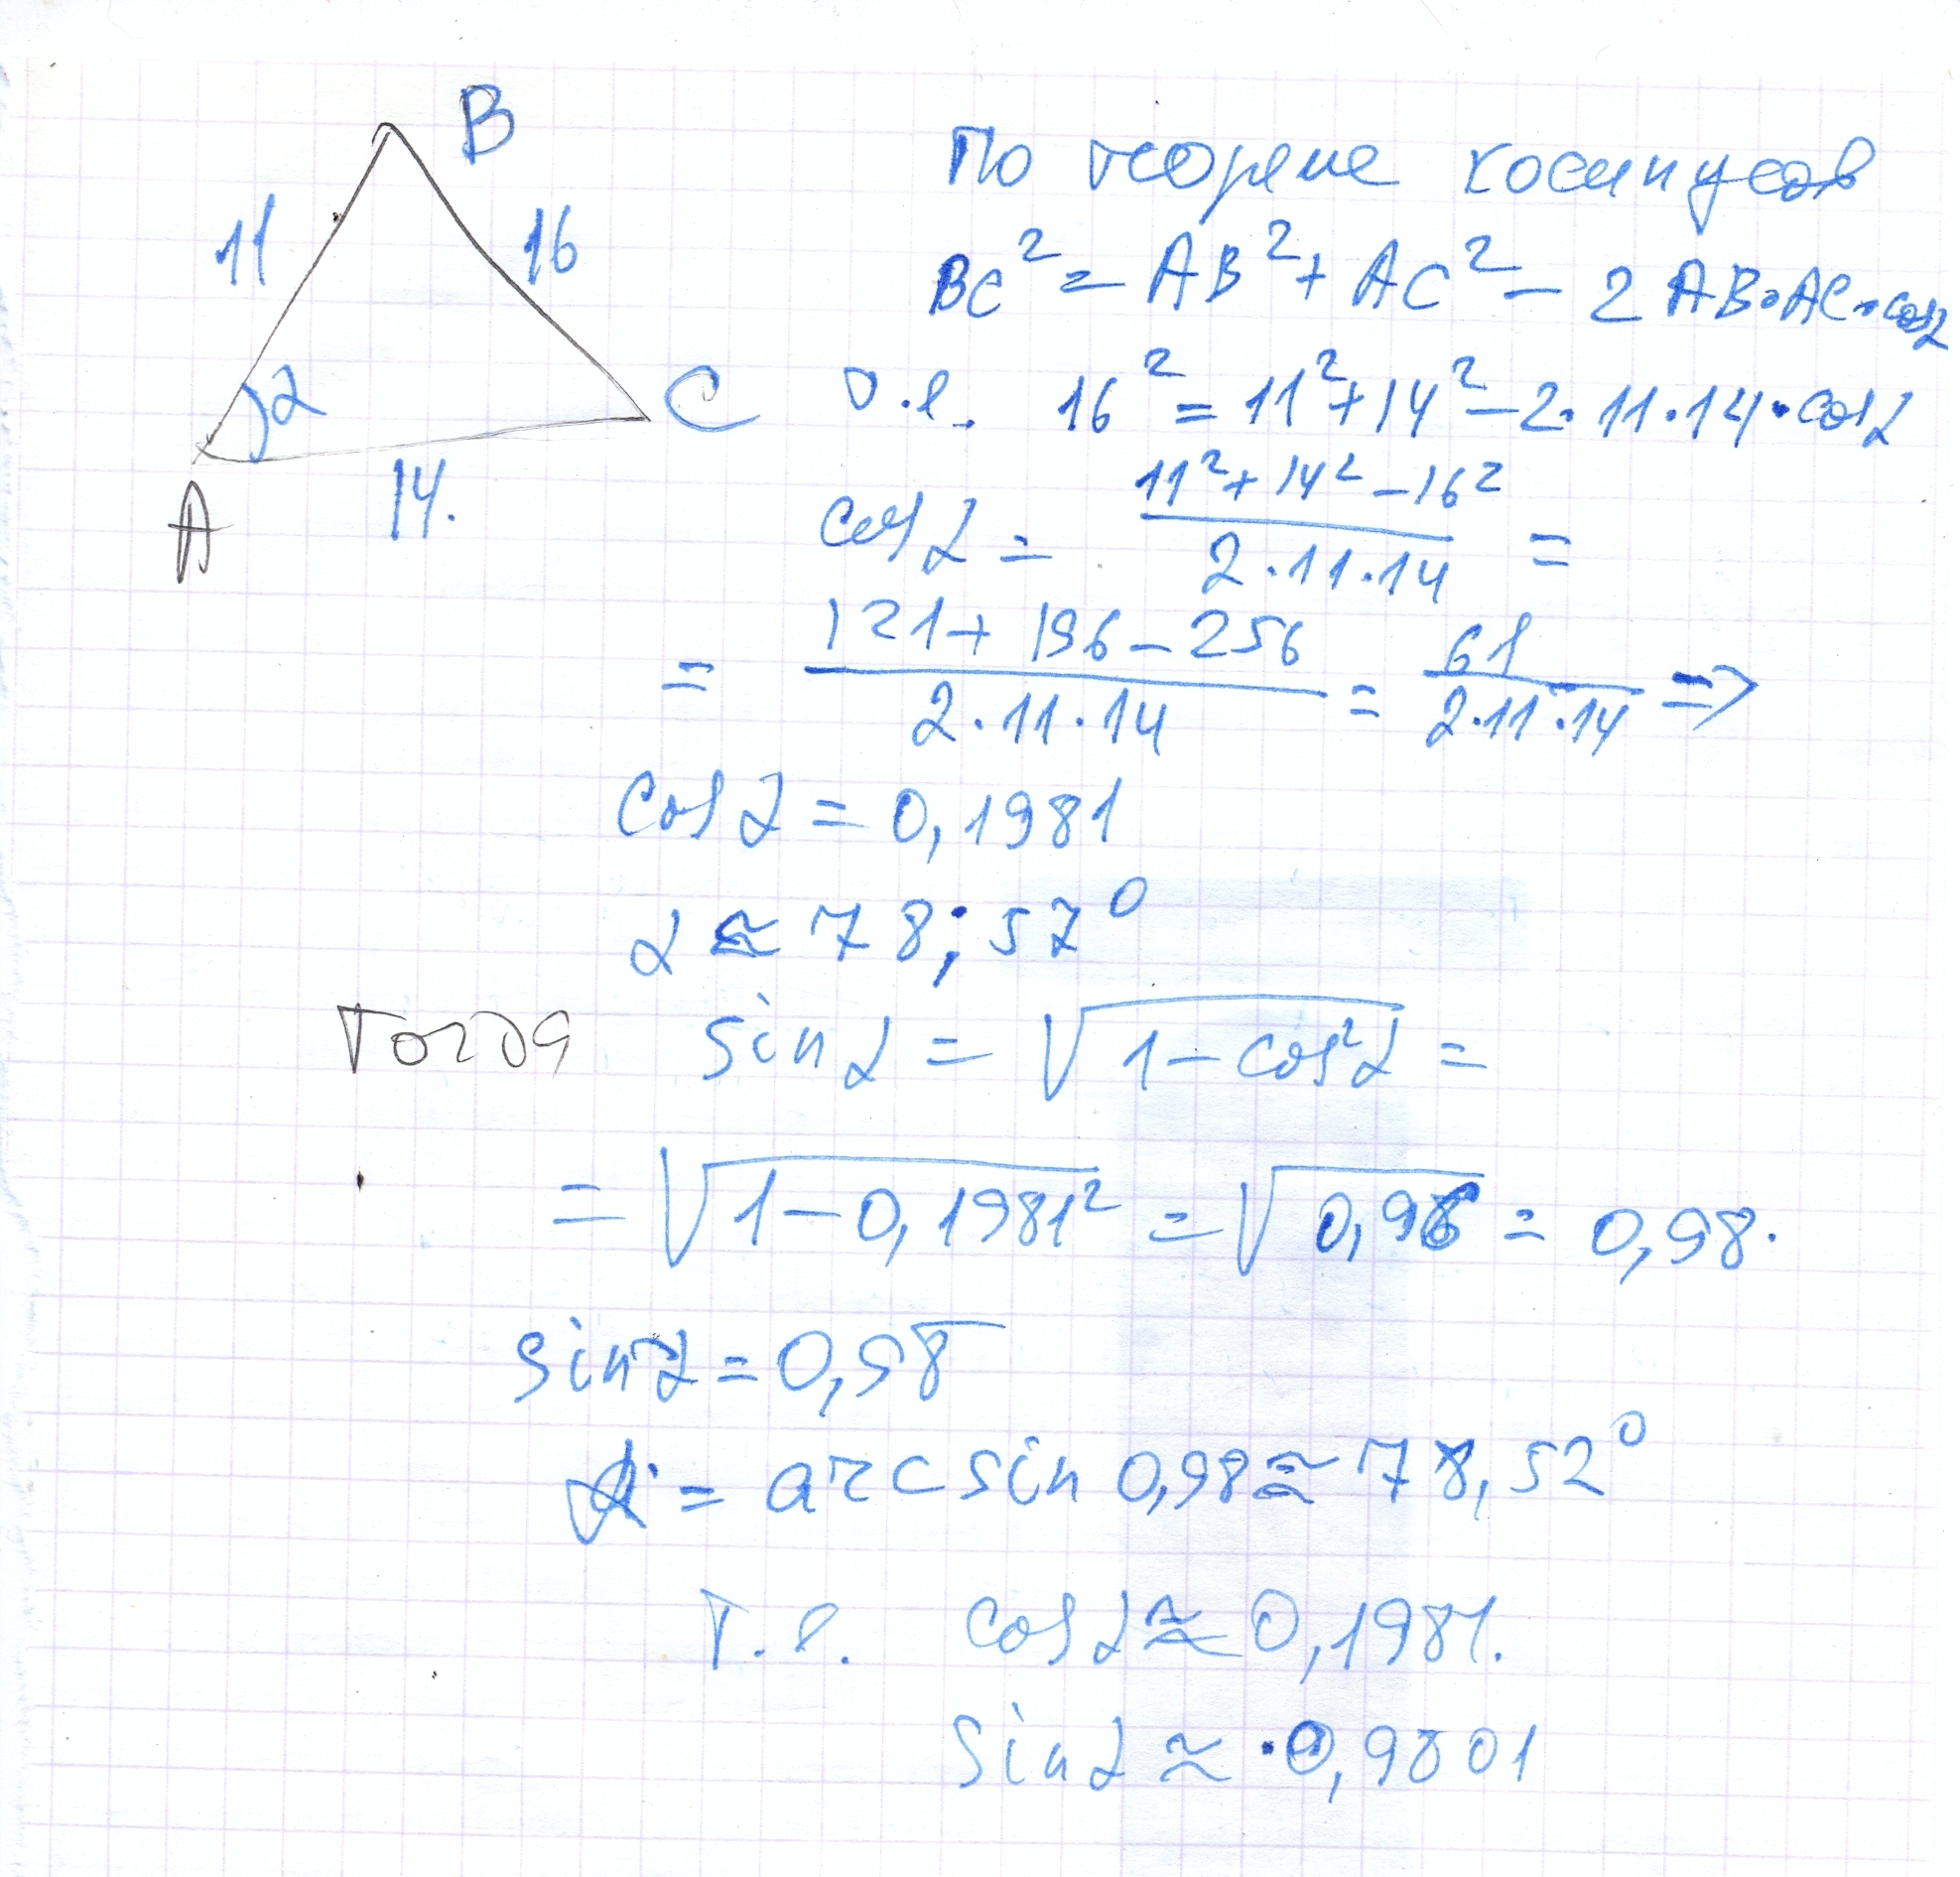 B
11
16
α
C
A
14.
По теореме косинусов
BC² = AB² + AC² - 2 AB·AC·cosα
т.е. 16² = 11² + 14² - 2·11·14·cosα
cosα = (11² + 14² - 16²)/(2·11·14) =
= (121 + 196 - 256)/(2·11·14) = 61/(2·11·14) =>
cosα = 0,1981
α ≈ 78; 57°
Тогда sinα = √(1 - cos²α) =
= √(1 - 0,1981²) = √0,96 = 0,98.
sinα = 0,98
α = arcsin 0,98 ≈ 78,52°
Т.е. cosα ≈ 0,1981.
sinα ≈ 0,9801